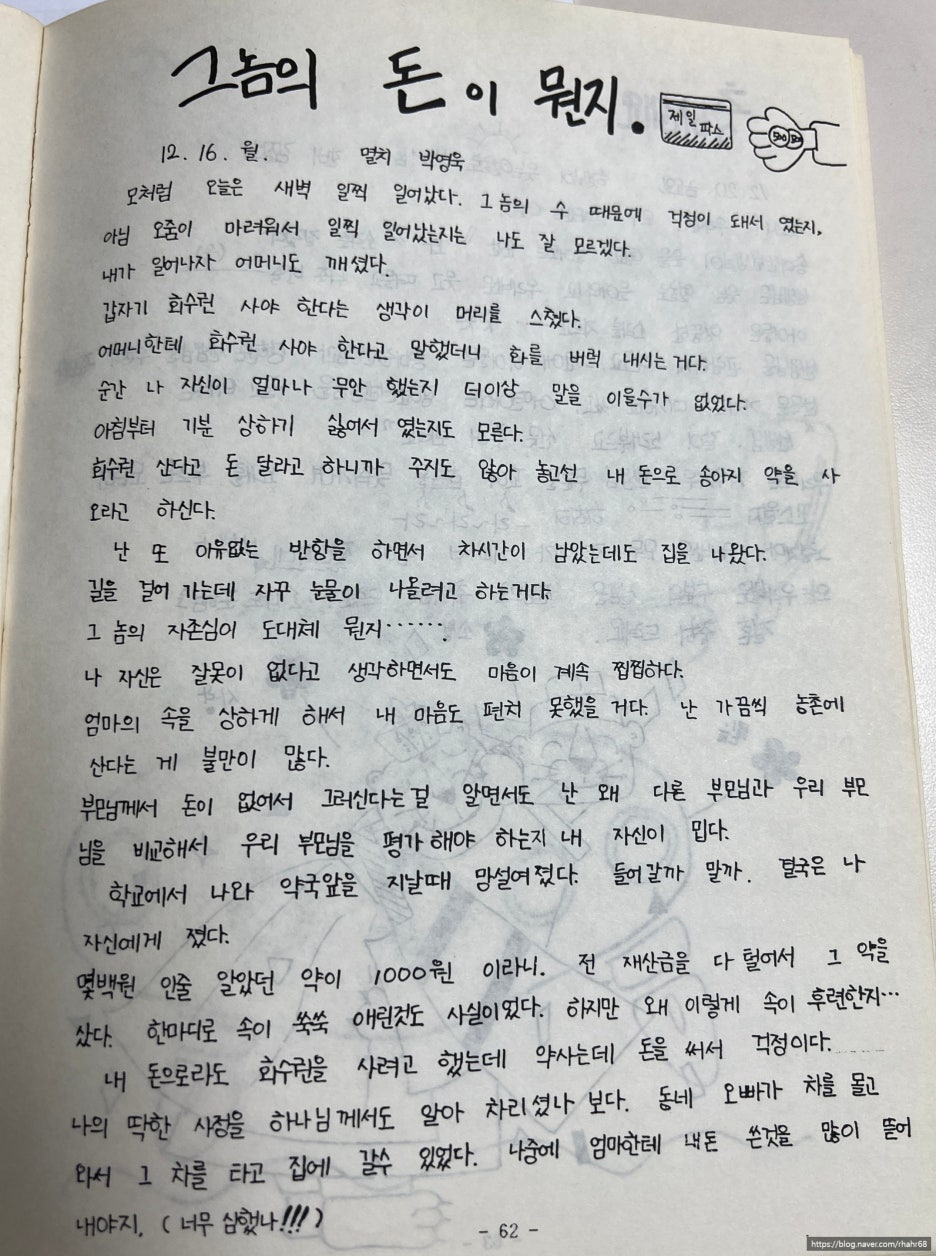 그놈의 돈이 뭔지.
제일 파스
12. 16. 월. 멸치 박영욱
모처럼 오늘은 새벽 일찍 일어났다. 그놈의 수 때문에 걱정이 돼서 였는지,
아님 오줌이 마려워서 일찍 일어났는지는 나도 잘 모르겠다.
내가 일어나자 어머니도 깨셨다.
갑자기 회수권 사야 한다는 생각이 머리를 스쳤다.
어머니한테 회수권 사야 한다고 말했더니 화를 버럭 내시는 거다.
순간 나 자신이 얼마나 무안 했는지 더이상 말을 이을수가 없었다.
아침부터 기분 상하기 싫어서 였는지도 모른다.
회수권 산다고 돈 달라고 하니까 주지도 않아 놓고선 내 돈으로 송아지 약을 사
오라고 하신다.
난 또 이유없는 반항을 하면서 차시간이 남았는데도 집을 나왔다.
길을 걸어 가는데 자꾸 눈물이 나올려고 하는거다.
그 놈의 자존심이 도대체 뭔지······.
나 자신은 잘못이 없다고 생각하면서도 마음이 계속 찝찝하다.
엄마의 속을 상하게 해서 내 마음도 편치 못했을 거다. 난 가끔씩 농촌에
산다는 게 불만이 많다.
부모님께서 돈이 없어서 그러신다는걸 알면서도 난 왜 다른 부모님과 우리 부모
님을 비교해서 우리 부모님을 평가해야 하는지 내 자신이 밉다.
학교에서 나와 약국앞을 지날때 망설여졌다. 들어갈까 말까. 결국은 나
자신에게 졌다.
몇백원 인줄 알았던 약이 1000원 이라니. 전 재산금을 다 털어서 그 약을
샀다. 한마디로 속이 쑥쑥 애린것도 사실이었다. 하지만 왜 이렇게 속이 후련한지···
내 돈으로라도 회수권을 사려고 했는데 약사는데 돈을 써서 걱정이다.
나의 딱한 사정을 하나님께서도 알아 차리셨나 보다. 동네 오빠가 차를 몰고
와서 그 차를 타고 집에 갈수 있었다. 나중에 엄마한테 내돈 쓴것을 많이 뜯어
내야지. (너무 심했나!!!)
- 62 -
https://blog.naver.com/rhahr68